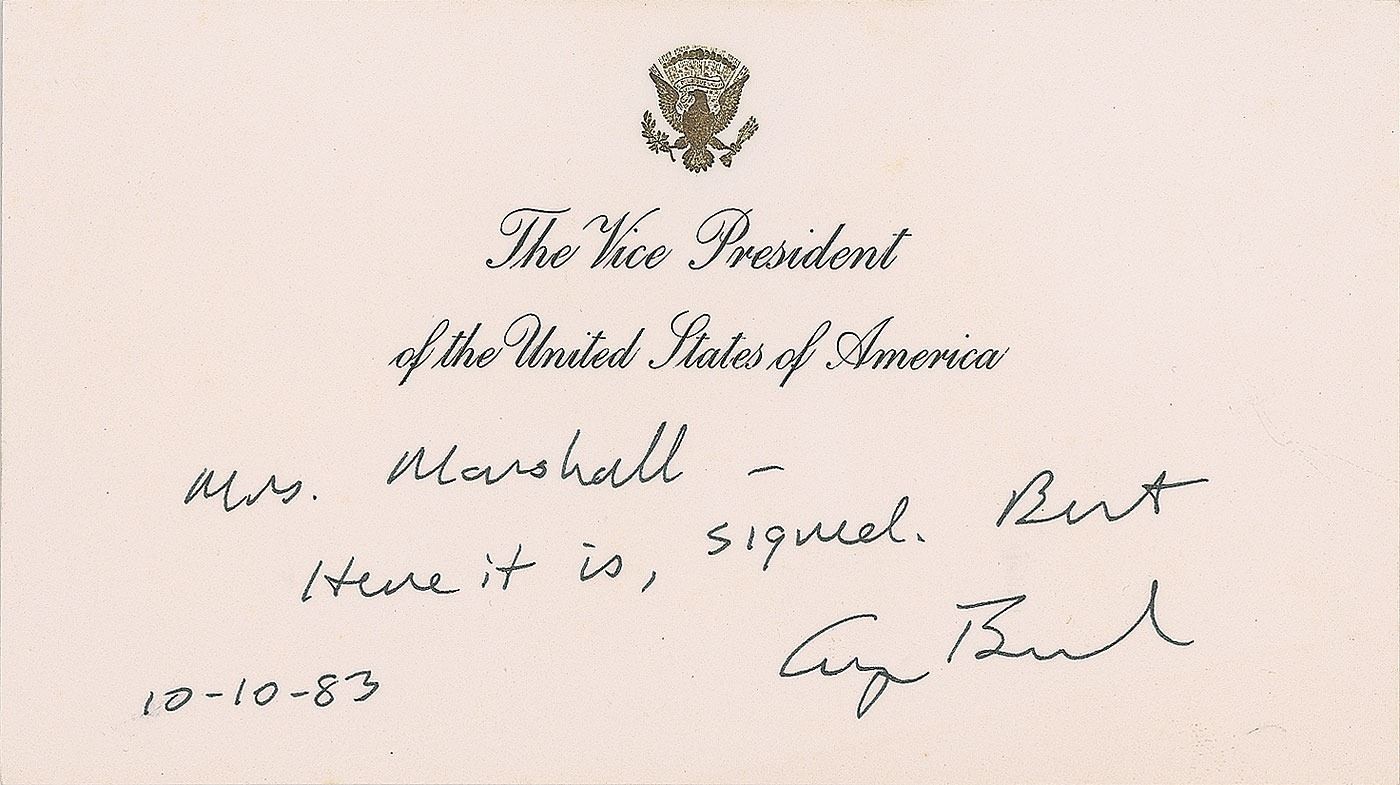 The Vice President
of the United States of America
Mrs. Marshall –
Here it is, signed. Best
George Bush
10-10-83